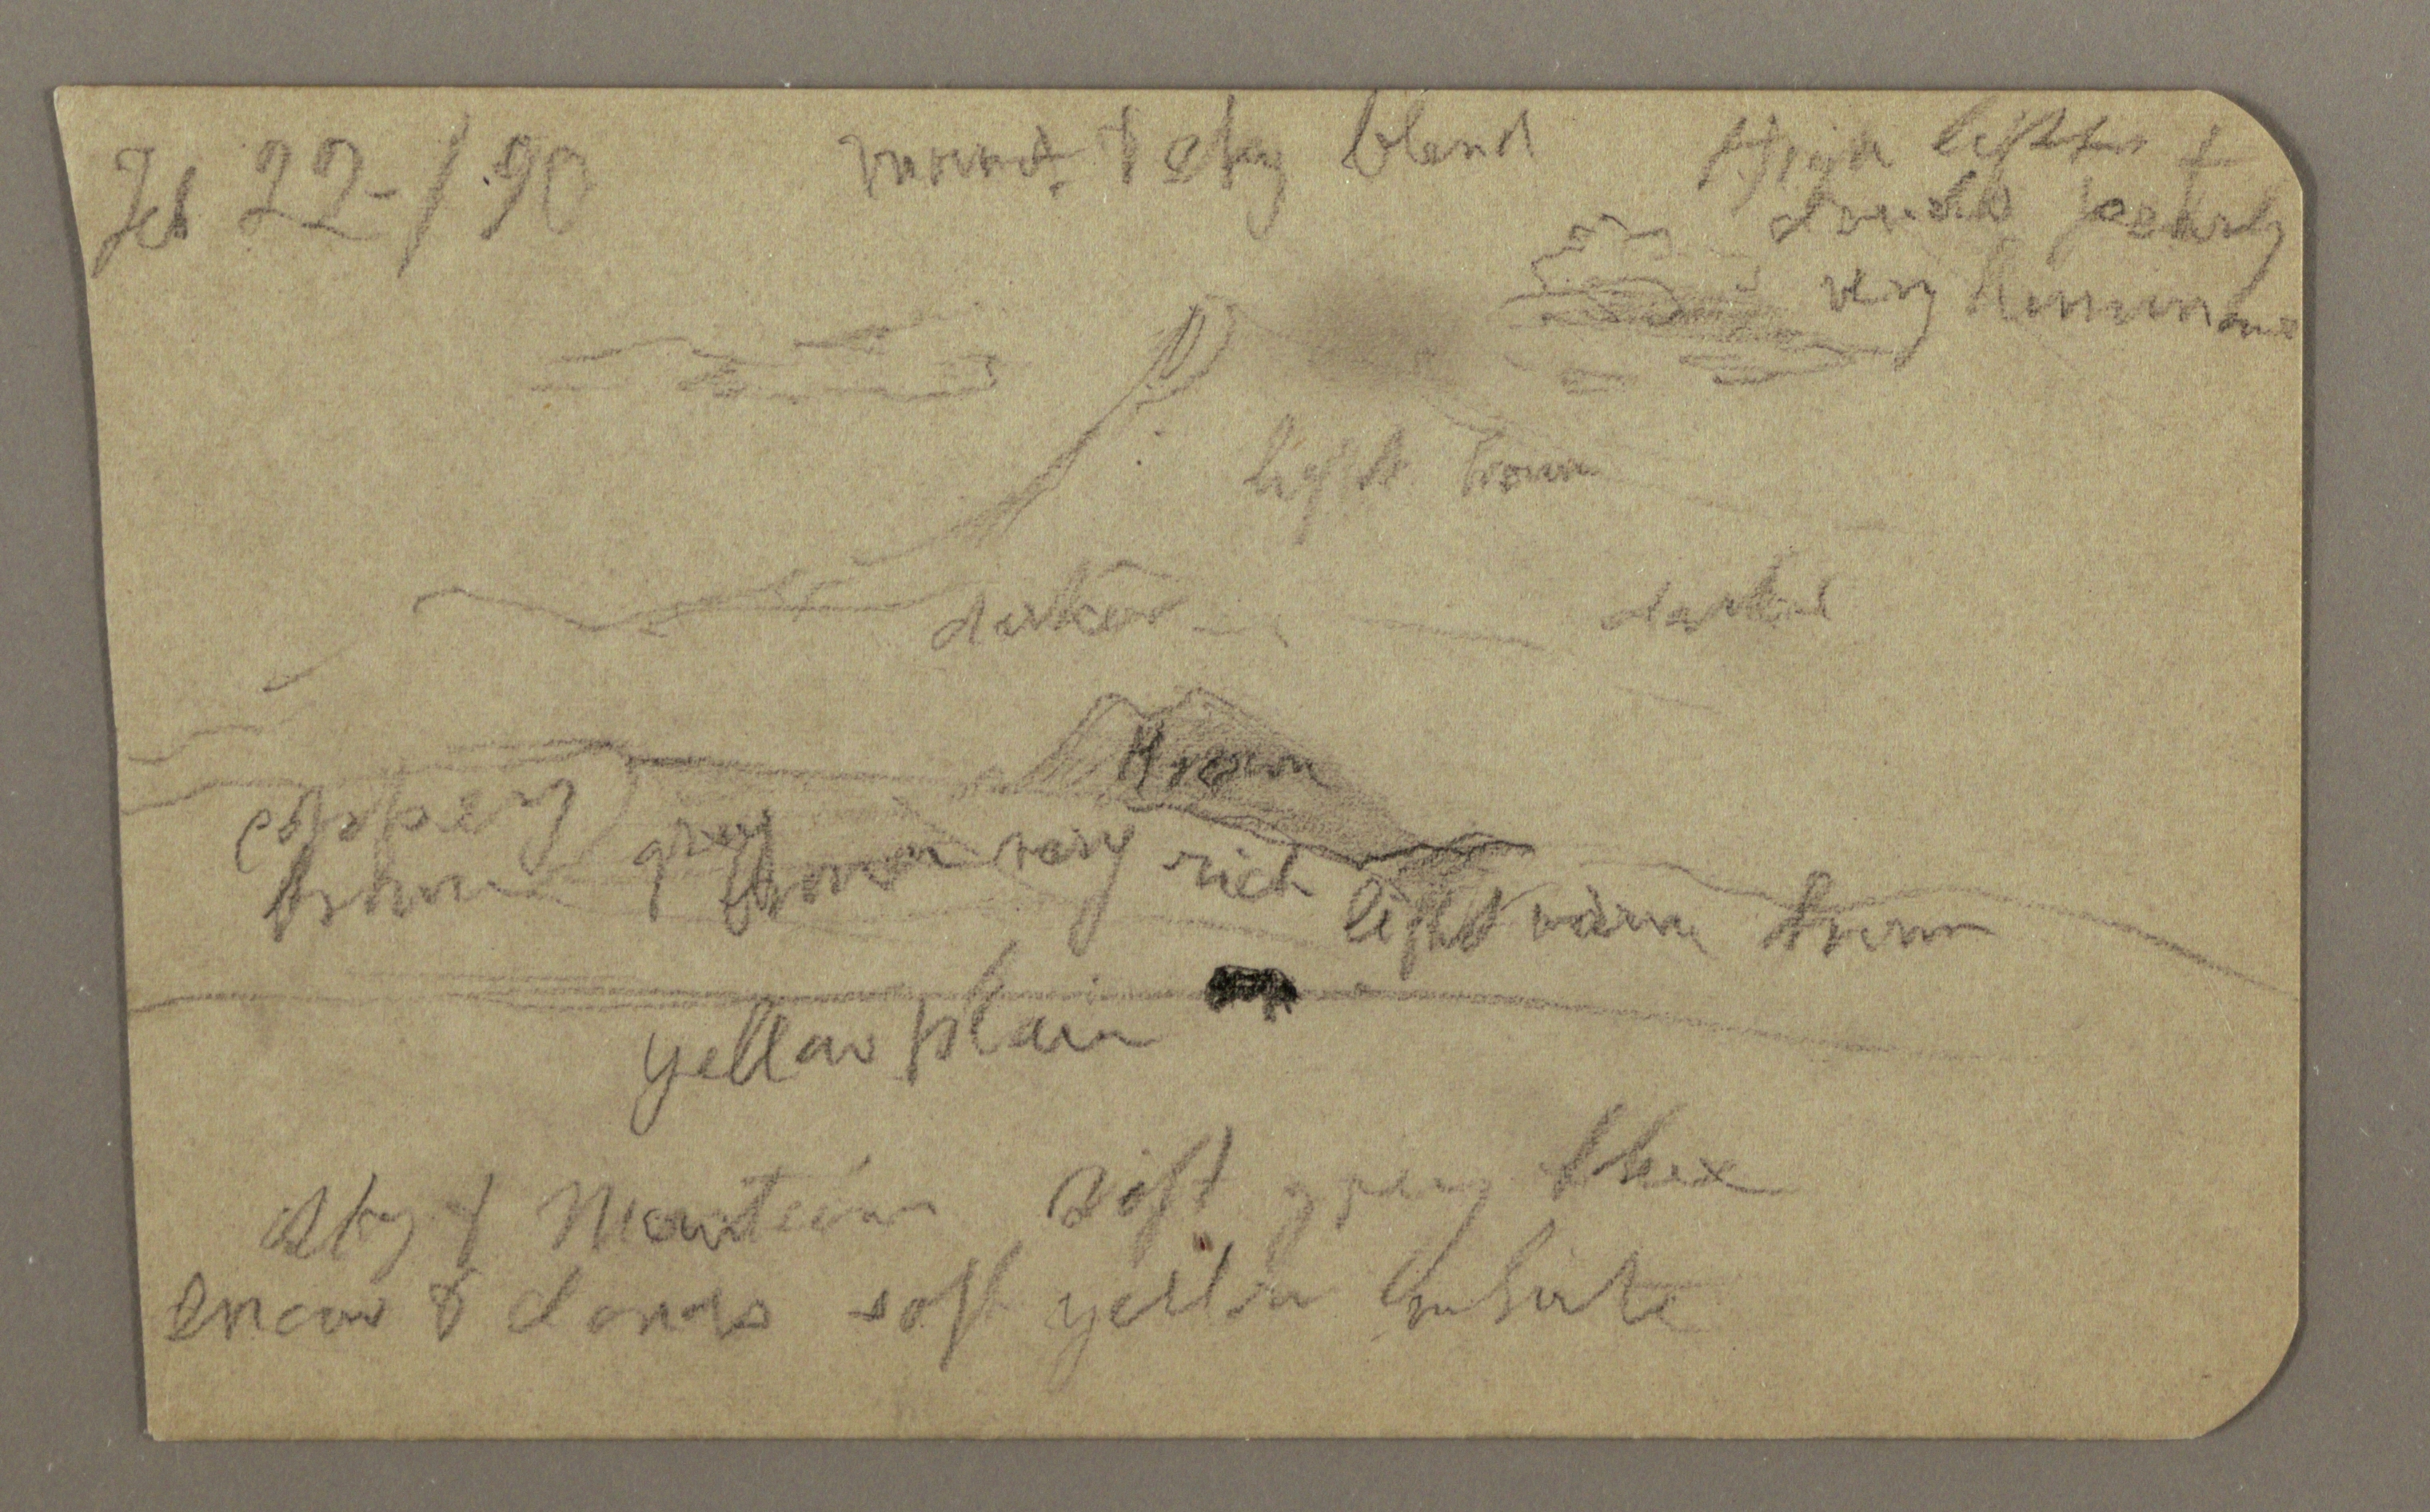 Feb 22-/90
mount. & sky blend
High lights +
clouds pearly
very luminous
light brown
darker
darker
Brown
coppery
brown
gray
brown very rich
light warm brown
yellow plain
sky & Mountain soft gray blue
snow & clouds soft yellow white